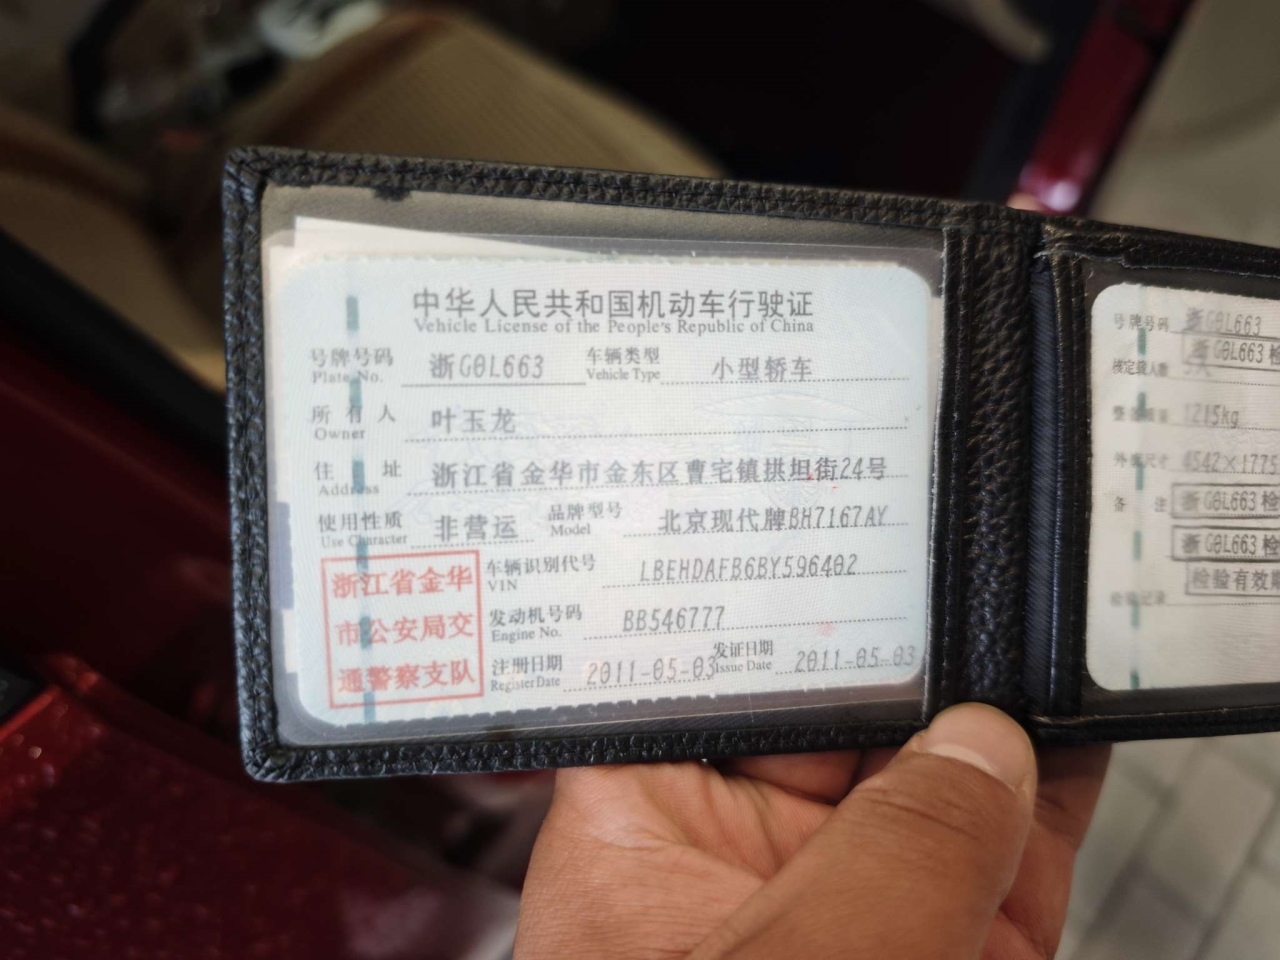 中华人民共和国机动车行驶证
Vehicle License of the People's Republic of China
号牌号码 浙G0L663 车辆类型 小型轿车
Plate No. Vehicle Type
所有人 叶玉龙
Owner
住址 浙江省金华市金东区曹宅镇拱坦街24号
Address
使用性质 非营运 品牌型号 北京现代牌BH7167AY
Use Character Model
浙江省金华
市公安局交
通警察支队
车辆识别代号 LBEHDAFB6BY596402
VIN
发动机号码 BB546777
Engine No.
注册日期 2011-05-03 发证日期 2011-05-03
Register Date Issue Date
号牌号码 浙G0L663
浙G0L663检
核定载人数 5人
整备质量 1215kg
外廓尺寸 4542×1775
备注 浙G0L663检
浙G0L663检
检验有效期
检验记录